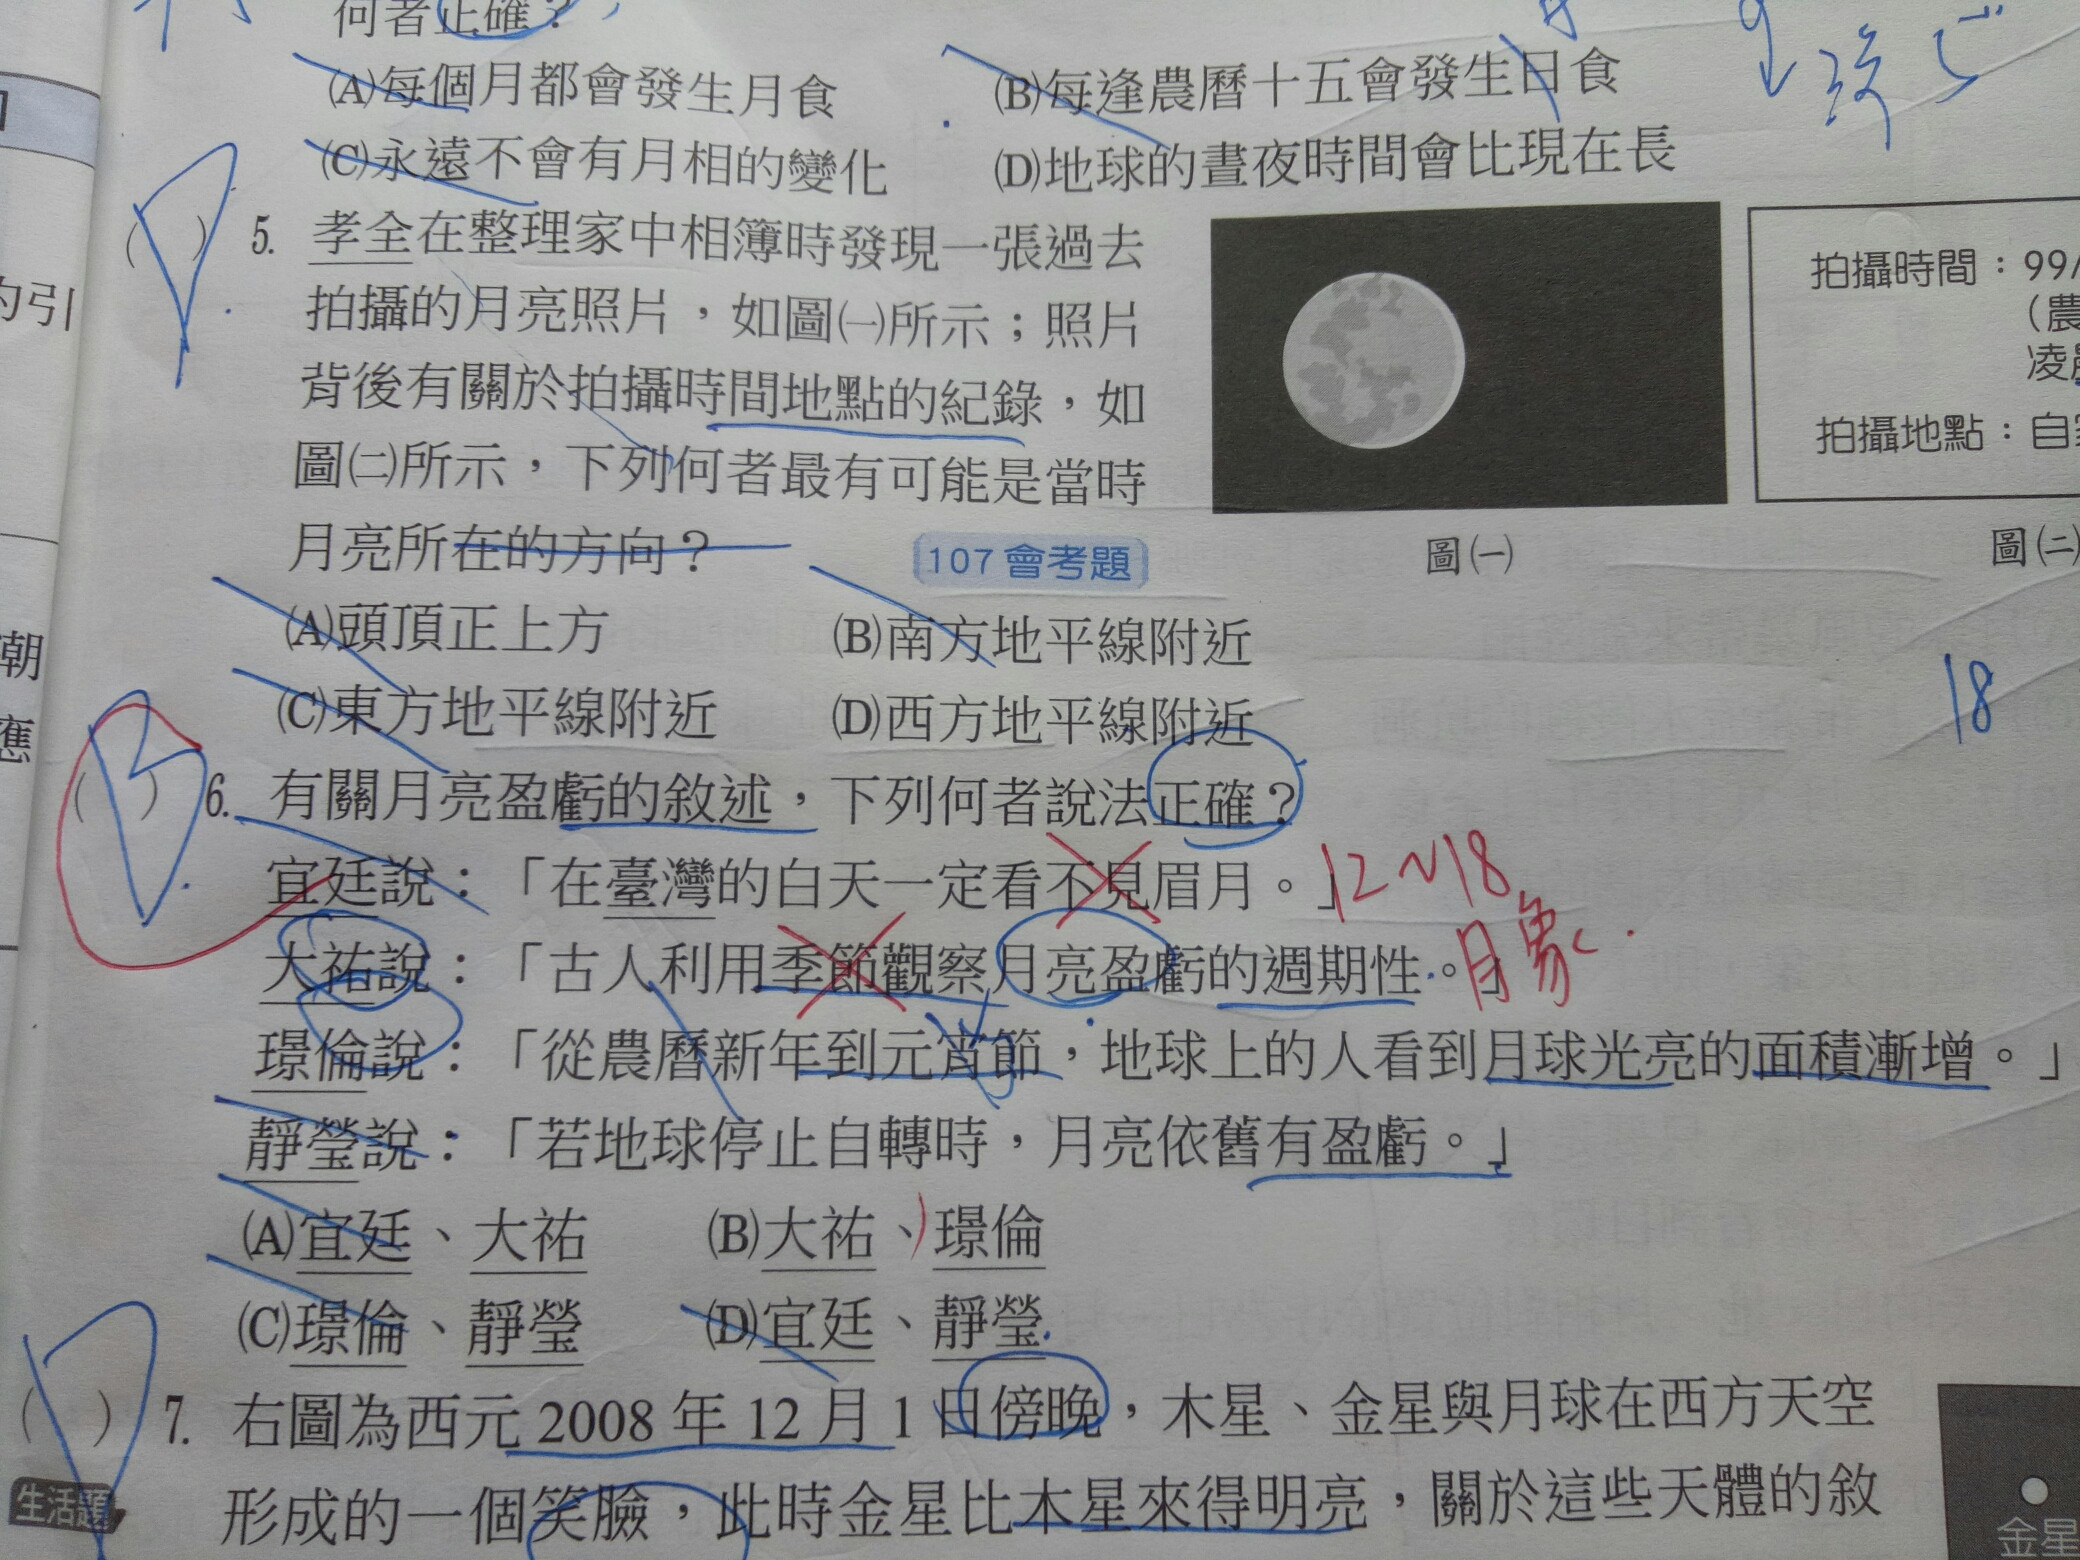 何者正確？
(A)每個月都會發生月食 (B)每逢農曆十五會發生日食
(C)永遠不會有月相的變化 (D)地球的晝夜時間會比現在長
( ) 5. 孝全在整理家中相簿時發現一張過去
拍攝的月亮照片，如圖㈠所示；照片
背後有關於拍攝時間地點的紀錄，如
圖㈡所示，下列何者最有可能是當時
月亮所在的方向？ 107 會考題
拍攝時間：99/
(農
凌
拍攝地點：自
圖㈠
圖㈡
(A)頭頂正上方 (B)南方地平線附近
(C)東方地平線附近 (D)西方地平線附近
18
( ) 6. 有關月亮盈虧的敘述，下列何者說法正確？
宜廷說：「在臺灣的白天一定看不見眉月。」 12~18
大祐說：「古人利用季節觀察月亮盈虧的週期性。」 月象
璟倫說：「從農曆新年到元宵節，地球上的人看到月球光亮的面積漸增。」
靜瑩說：「若地球停止自轉時，月亮依舊有盈虧。」
(A)宜廷、大祐 (B)大祐、璟倫
(C)璟倫、靜瑩 (D)宜廷、靜瑩
( ) 7. 右圖為西元 2008 年 12 月 1 日傍晚，木星、金星與月球在西方天空
生活題 形成的一個笑臉，此時金星比木星來得明亮，關於這些天體的敘
金星
的引
潮
應